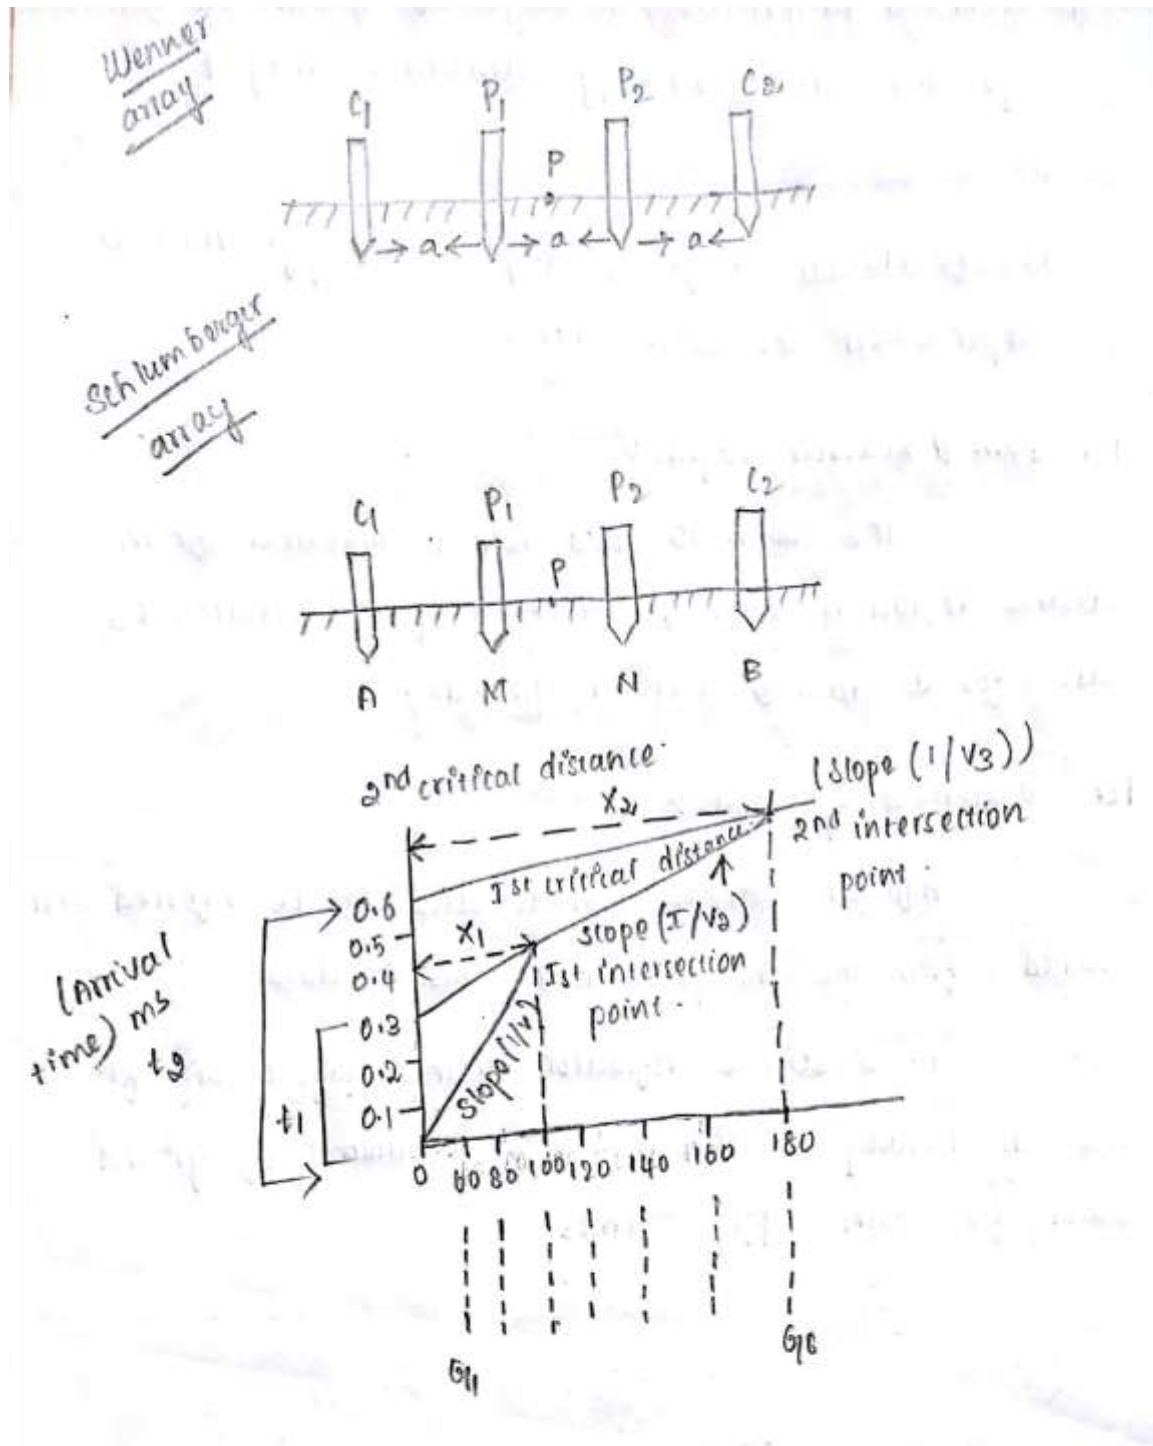 Wenner
array
C1 P1 P2 C2
P
a a a
Schlumberger
array
C1 P1 P2 C2
P
A M N B
2nd critical distance
X2
(slope (1/V3))
2nd intersection
point.
Ist critical distance
X1
slope (I/V2)
Ist intersection
point.
slope (1/V1)
(Arrival
time) ms
t2
t1
0.6
0.5
0.4
0.3
0.2
0.1
0 60 80 100 120 140 160 180
G1